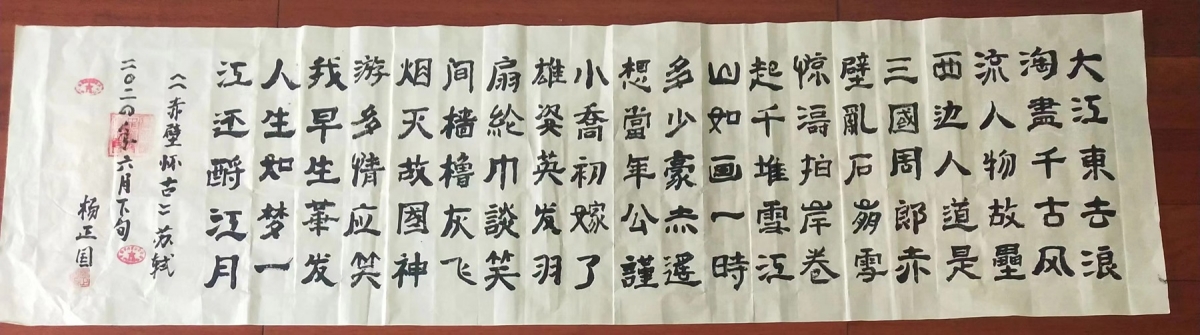 大江東去浪
淘盡千古风
流人物故壘
西边人道是
三國周郎赤
壁亂石崩雪
惊濤拍岸卷
起千堆雪江
山如画一時
多少豪杰遥
想當年公謹
小喬初嫁了
雄姿英发羽
扇綸巾談笑
间樯櫓灰飞
烟灭故國神
游多情应笑
我早生華发
人生如梦一
江还酹江月
《赤壁怀古》苏轼
二〇二四年六月下旬
杨正国